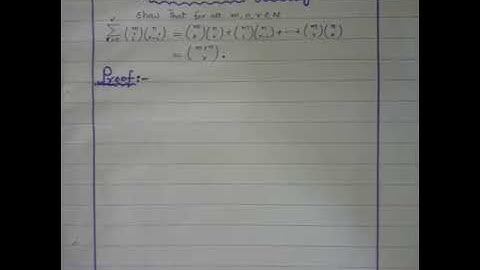 Show That for all m, n, r ∈ N
∑ (m i)(n r-i) = (m 0)(n r) + (m 1)(n r-1) + ⟶ (m r)(n 0)
= (m+n r).
Proof:-